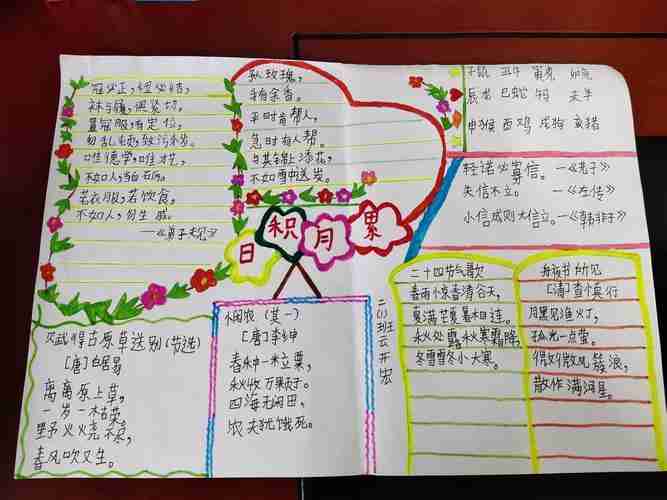 冠必正,纽必结,
袜与履,俱紧切。
置冠服,有定位,
勿乱顿,致污秽。
唯德学,唯才艺,
不如人,当自砺。
若衣服,若饮食,
不如人,勿生戚。
——《弟子规》
玫瑰,
手有余香。
平时肯帮人,
急时有人帮。
与其锦上添花,
不如雪中送炭。
子鼠 丑牛 寅虎 卯兔
辰龙 巳蛇 午马 未羊
申猴 酉鸡 戌狗 亥猪
轻诺必寡信。—《老子》
失信不立。—《左传》
小信成则大信立。—《韩非子》
日积月累
赋得古原草送别(节选)
[唐]白居易
离离原上草,
一岁一枯荣。
野火烧不尽,
春风吹又生。
悯农(其一)
[唐]李绅
春种一粒粟,
秋收万颗子。
四海无闲田,
农夫犹饿死。
二(1)班云开宏
二十四节气歌
春雨惊春清谷天,
夏满芒夏暑相连。
秋处露秋寒霜降,
冬雪雪冬小大寒。
舟夜书所见
[清]查慎行
月黑见渔灯,
孤光一点萤。
微微风簇浪,
散作满河星。